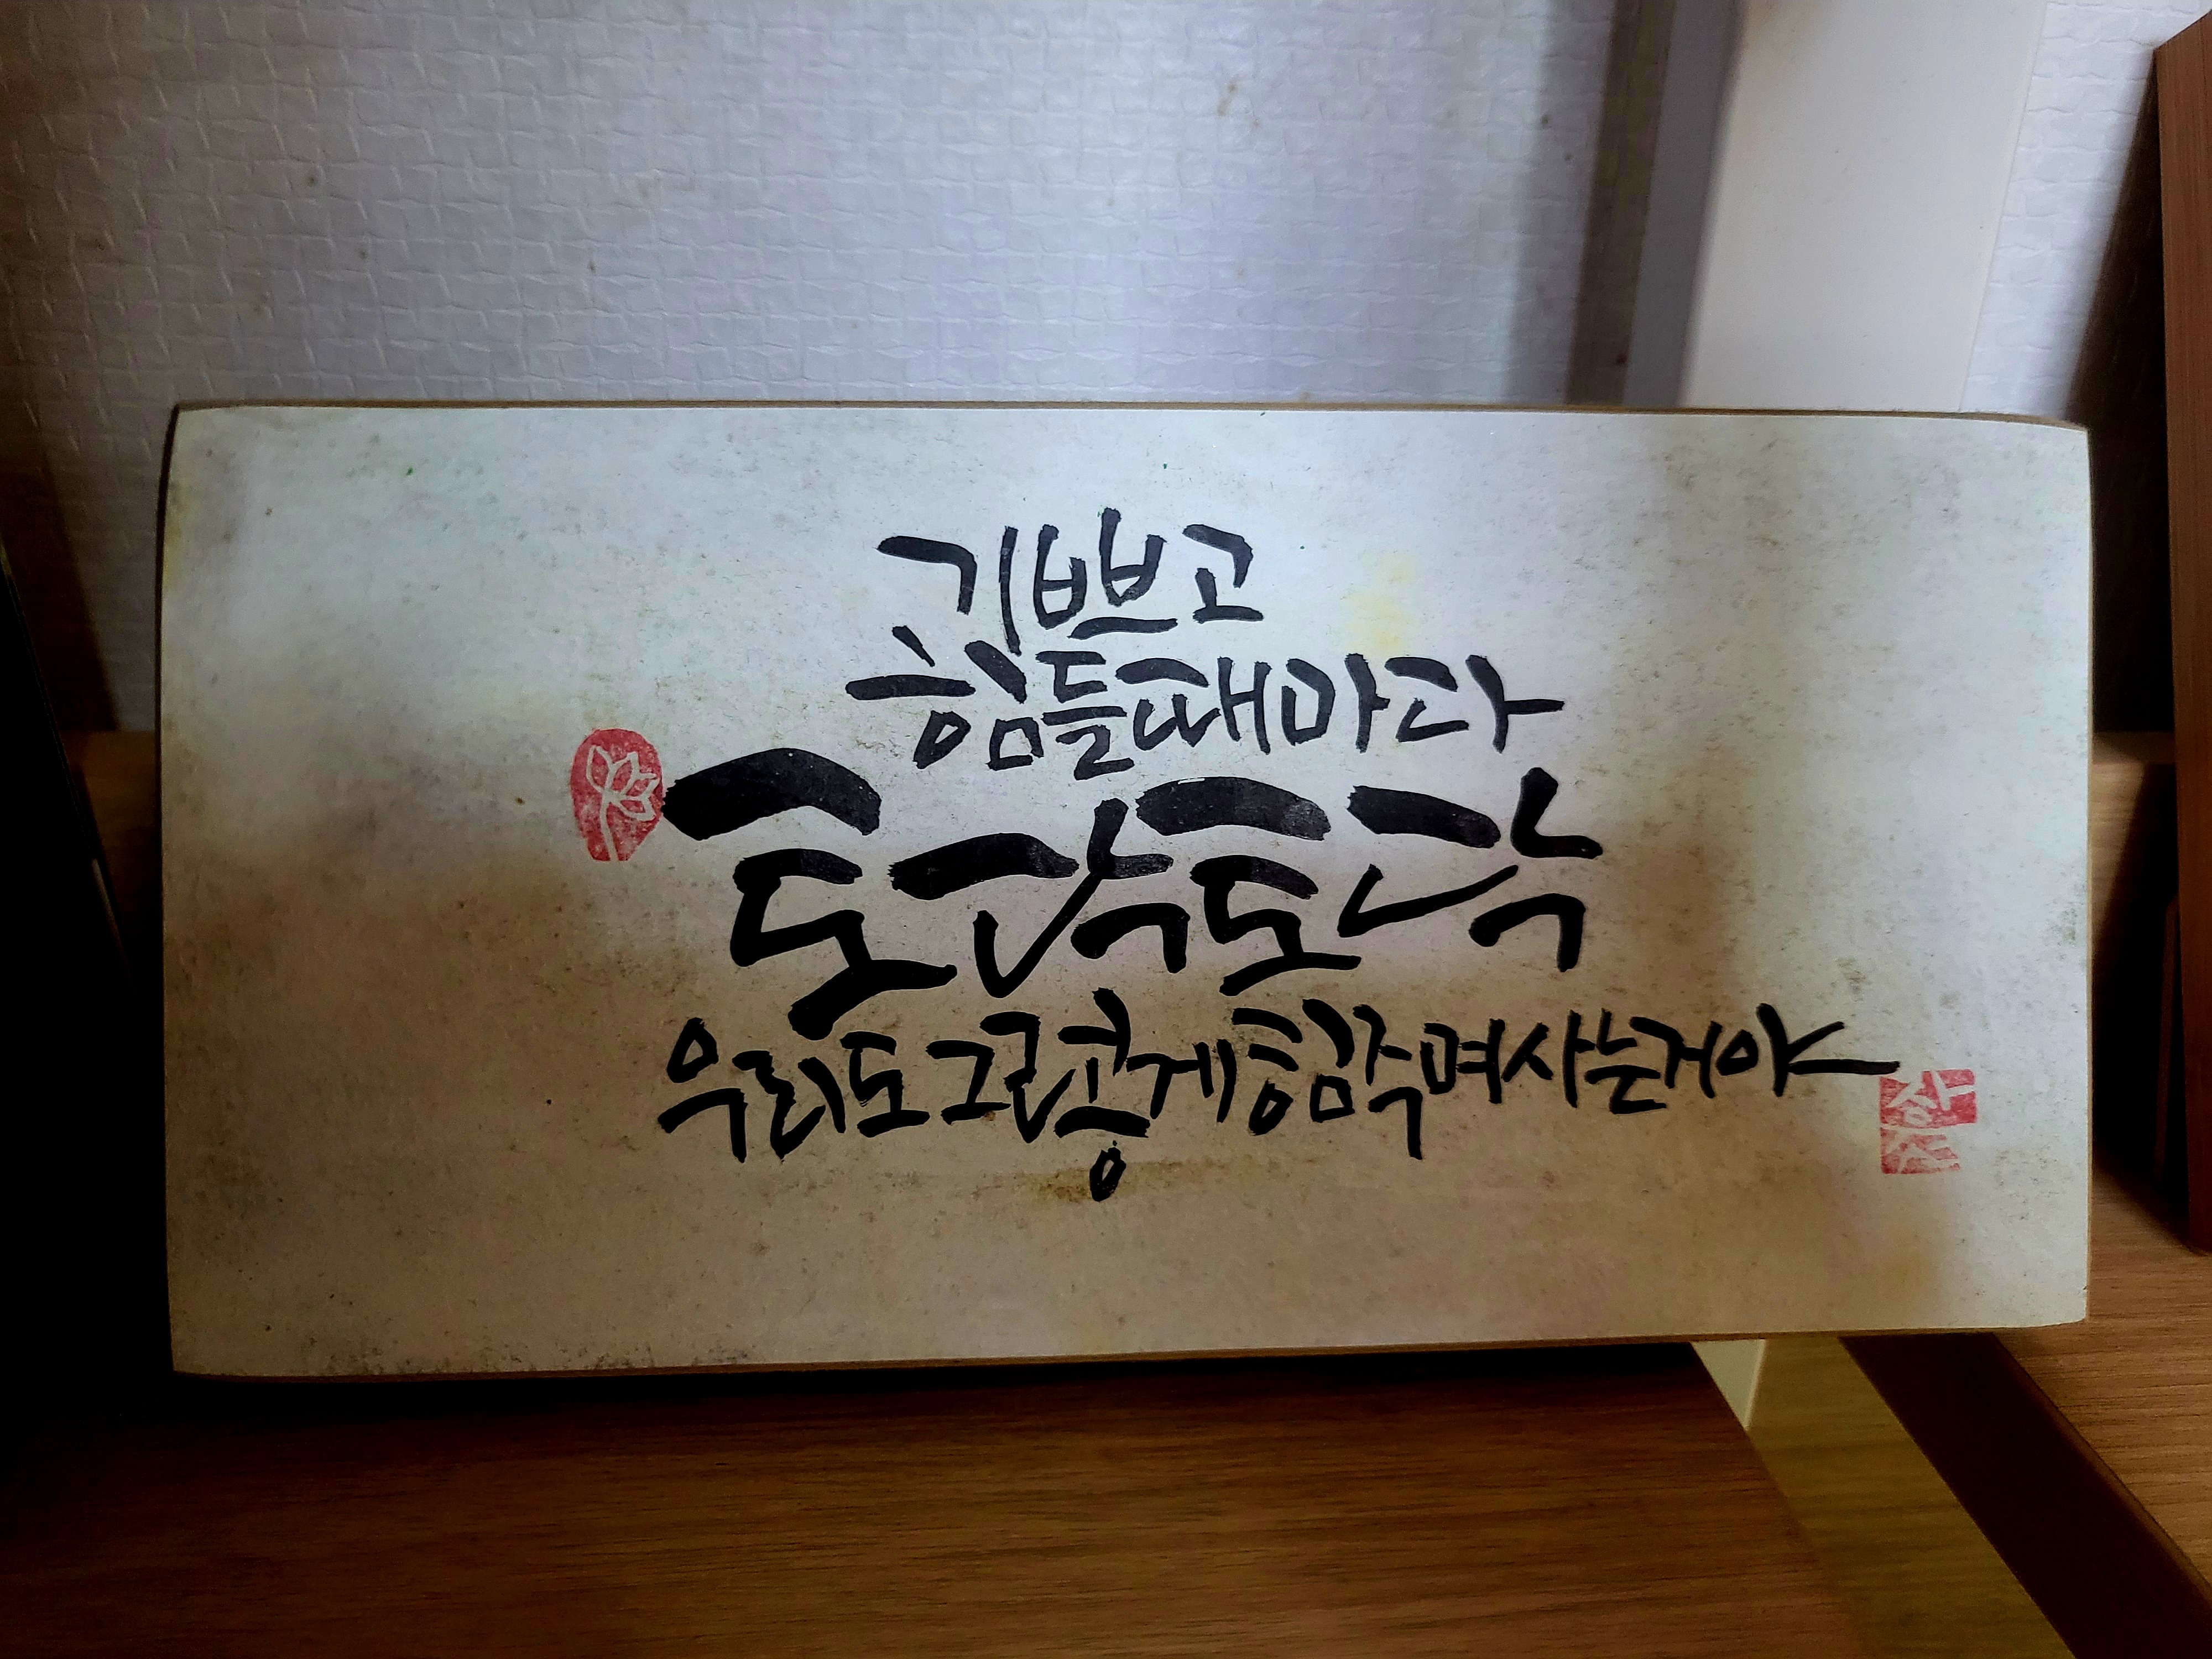 기쁘고
힘들때마다
토닥토닥
우리도그렇게힘주며사는거야